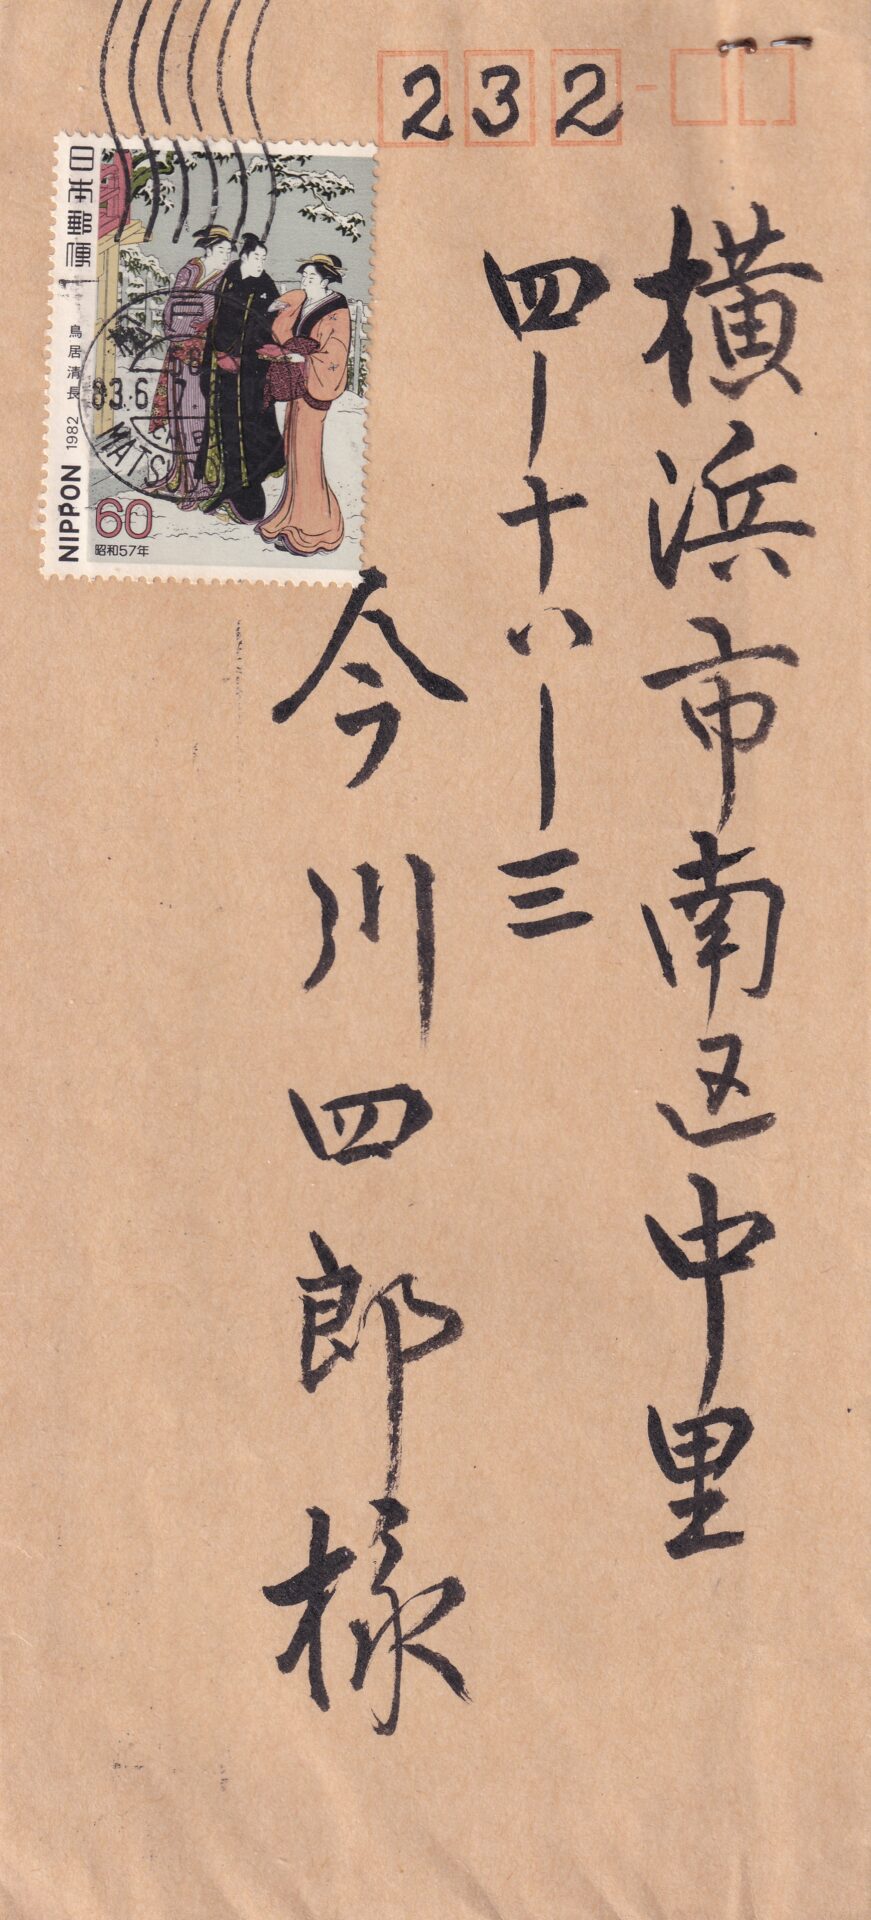 232
横浜市南区中里
四ー十八ー三
今川四郎様
日本郵便
鳥居清長
1982
NIPPON
60
昭和57年
松戸
83.6.7
MATSUDO